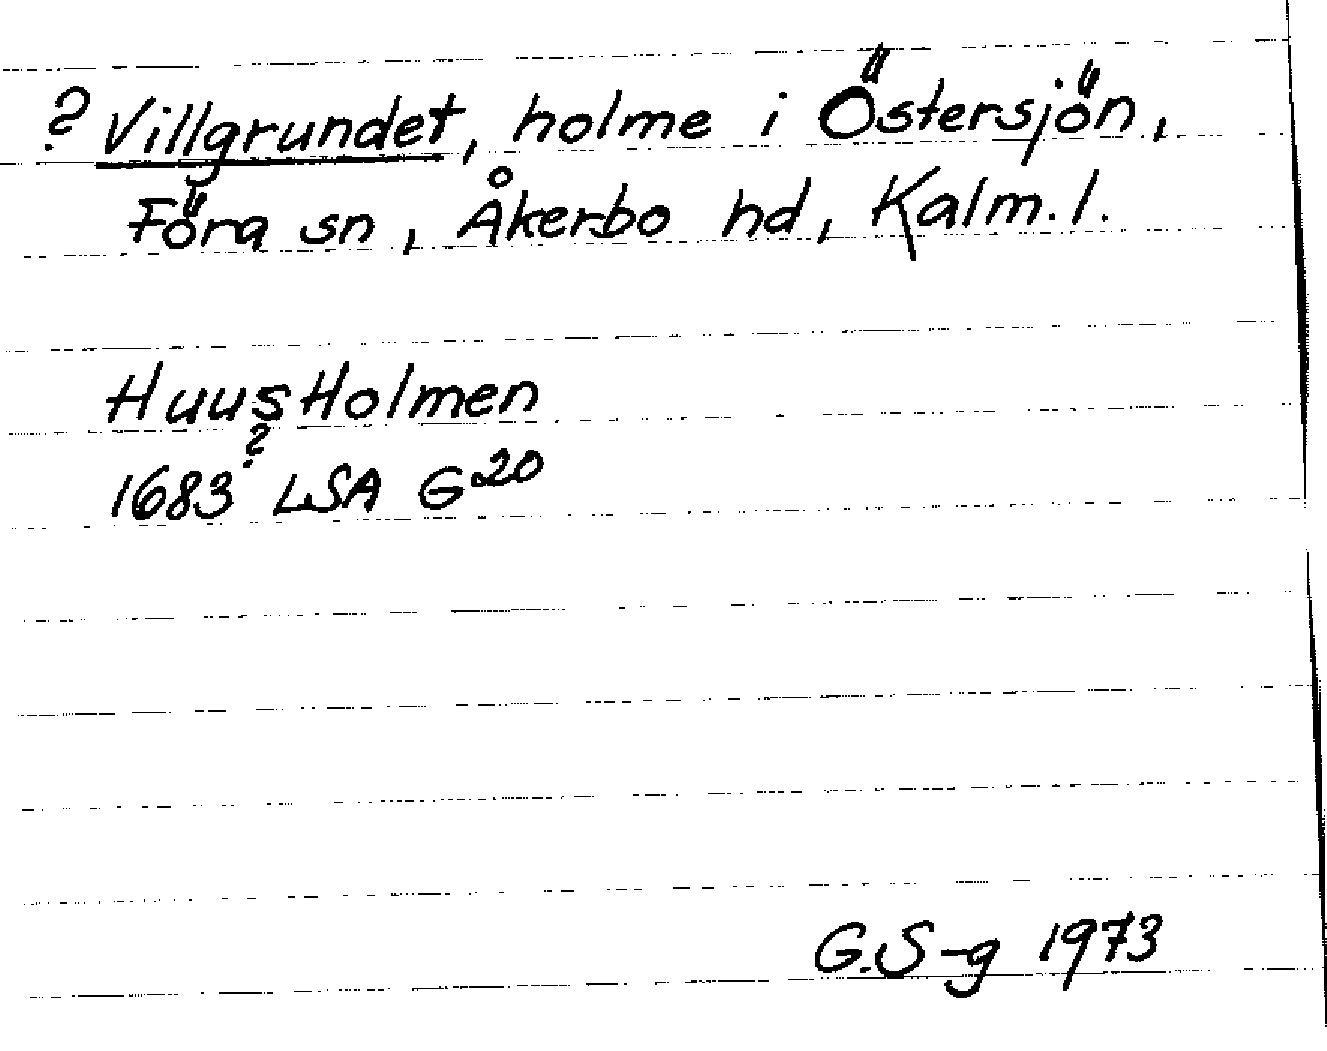 ? Villgrundet, holme i Östersjön,
Föra sn, Åkerbo hd, Kalm. l.
HuusHolmen
?
1683 LSA G20
G.S-g 1973